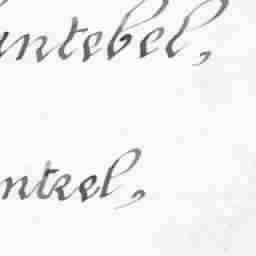 untebel,
nteel,